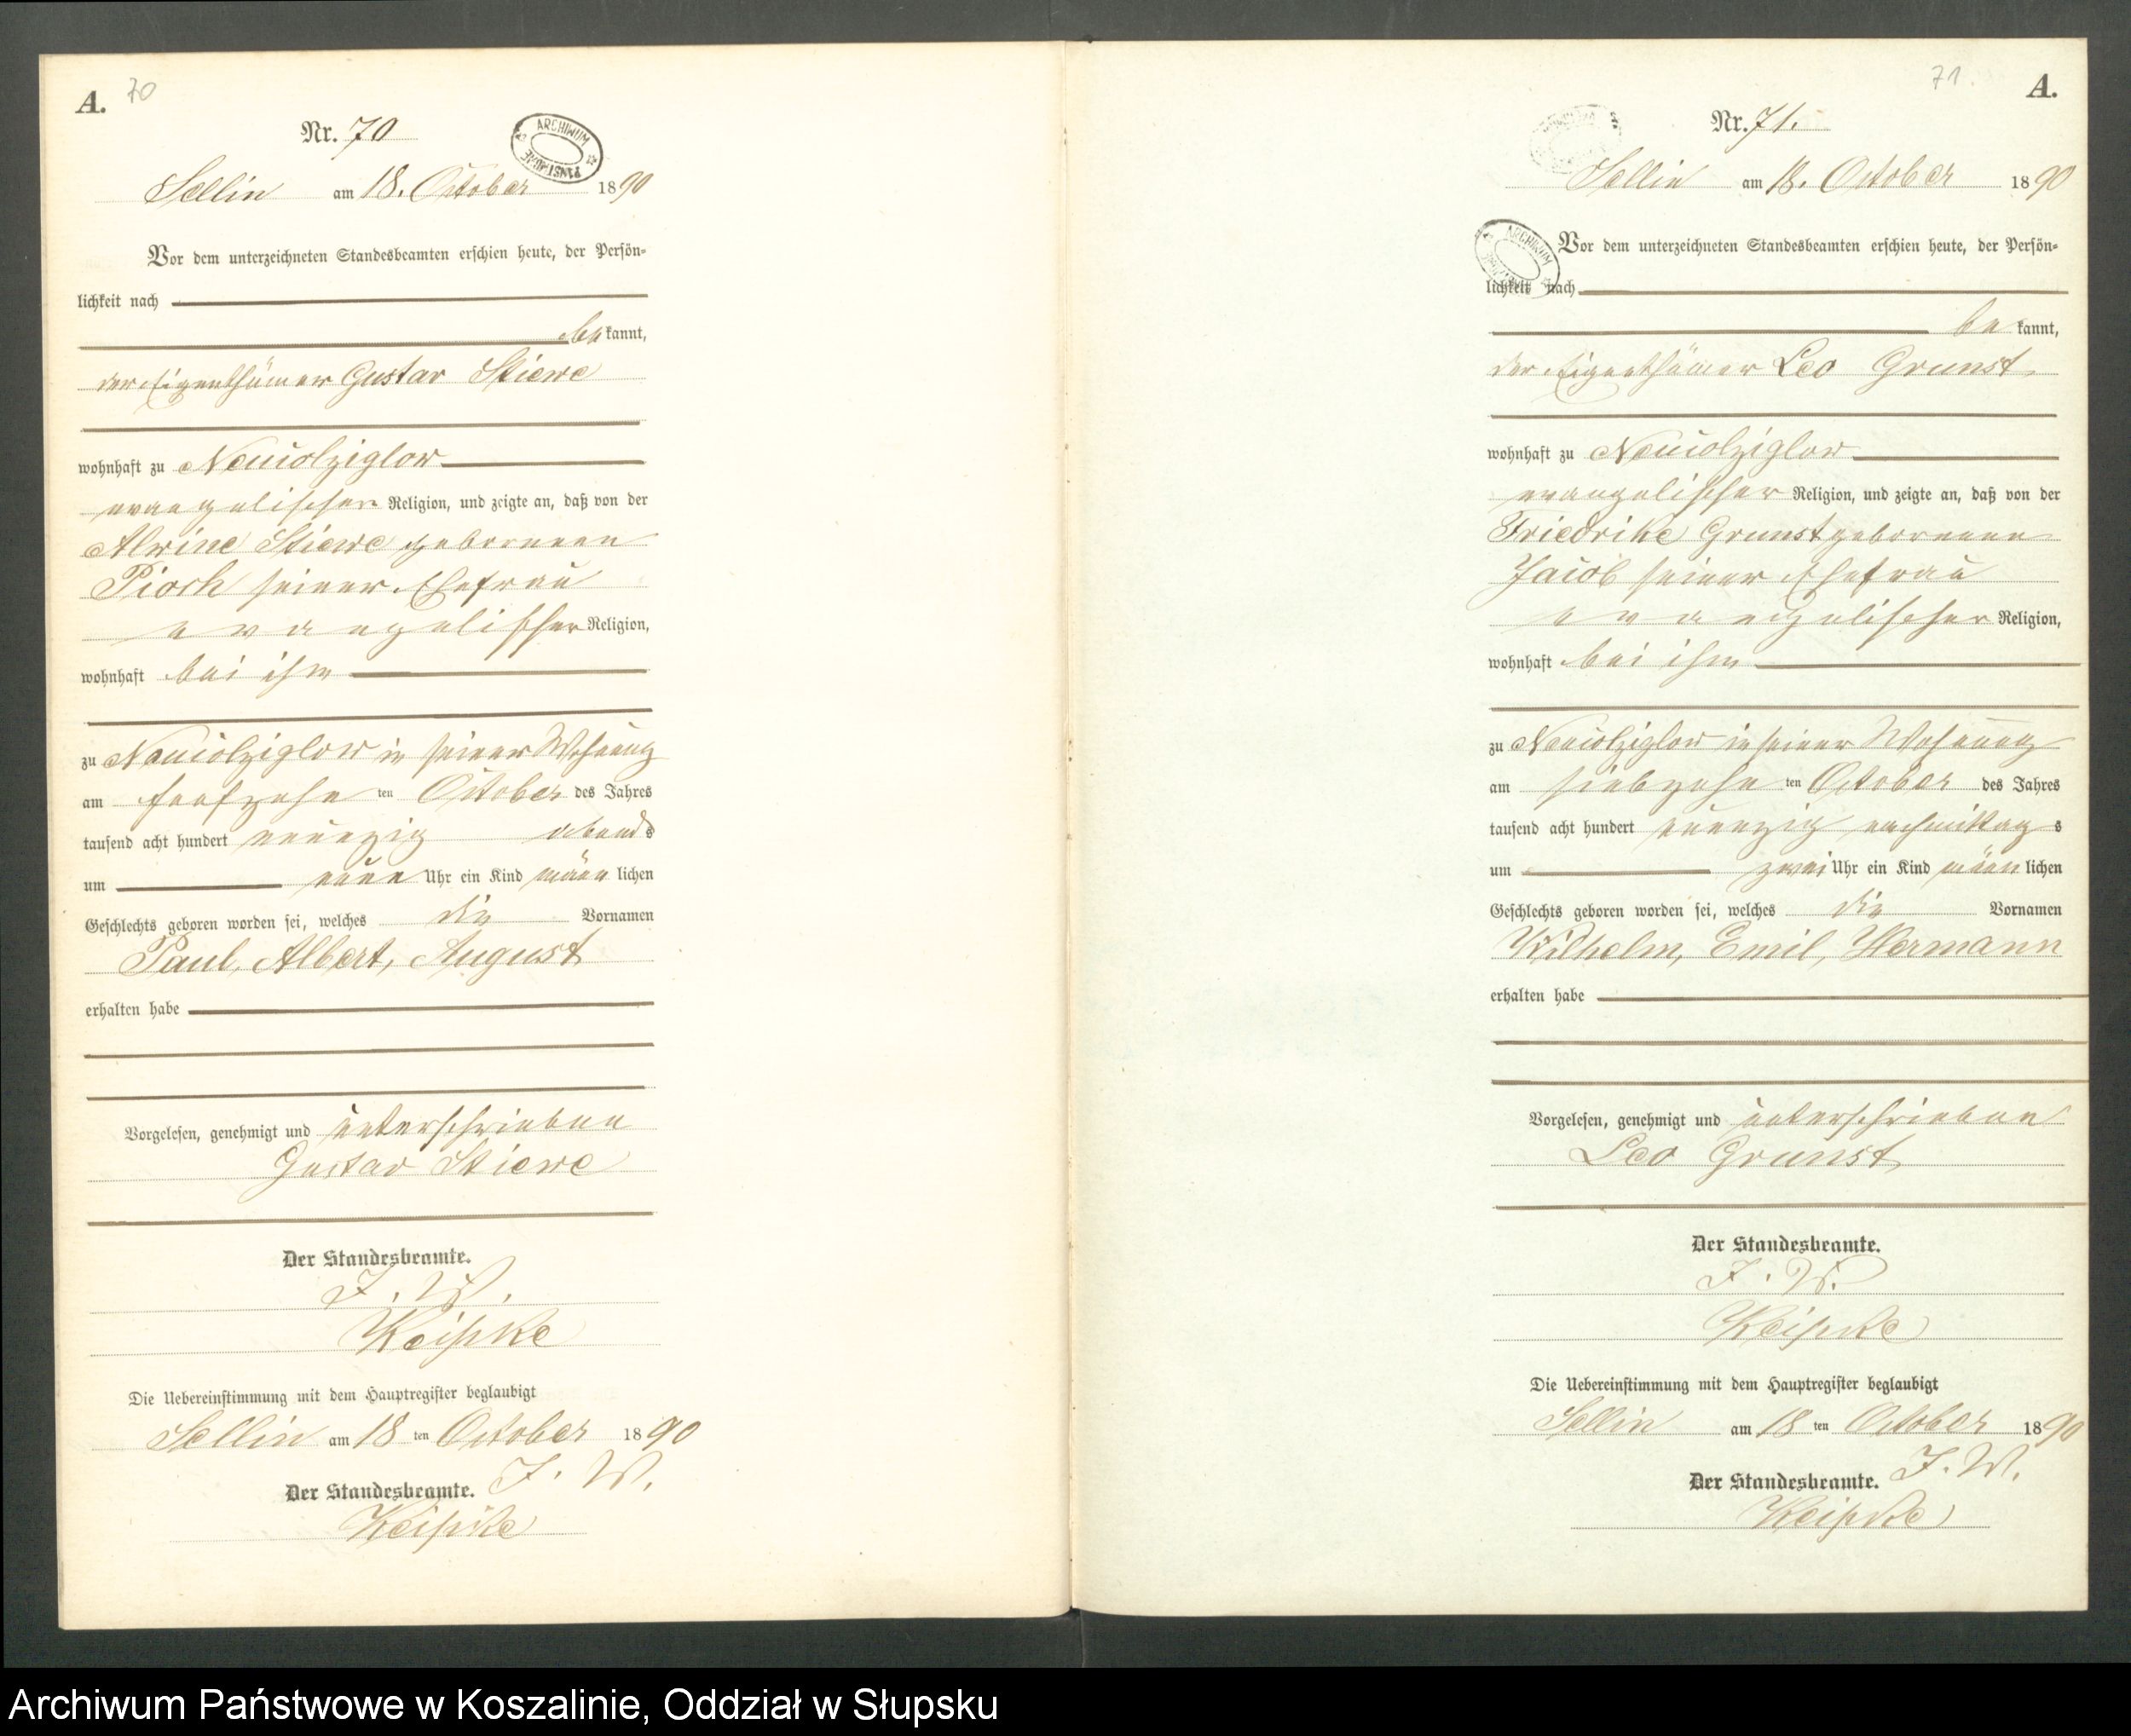 A. 70
Nr. 70
ARCHIWUM PAŃSTWOWE
Sellin am 18. October 1890
Vor dem unterzeichneten Standesbeamten erschien heute, der Persön-
lichkeit nach
bekannt,
der Eigenthümer Gustav Stiewe
wohnhaft zu Neuiolziglow
evangelischer Religion, und zeigte an, daß von der
Alwine Stiewe geborenen
Pioch seiner Ehefrau
evangelischer Religion,
wohnhaft bei ihm
zu Neuiolziglow in seiner Wohnung
am funfzehn ten October des Jahres
tausend acht hundert neunzig abends
um neun Uhr ein Kind männlichen
Geschlechts geboren worden sei, welches die Vornamen
Paul, Albert, August
erhalten habe
Vorgelesen, genehmigt und unterschrieben
Gustav Stiewe
Der Standesbeamte.
J. V.
Keipke
Die Uebereinstimmung mit dem Hauptregister beglaubigt
Sellin am 18 ten October 1890
Der Standesbeamte. J. V.
Keipke
71 A.
Nr. 71.
Sellin am 18. October 1890
ARCHIWUM
Vor dem unterzeichneten Standesbeamten erschien heute, der Persön-
lichkeit nach
bekannt,
der Eigenthümer Leo Grunst
wohnhaft zu Neuiolziglow
evangelischer Religion, und zeigte an, daß von der
Friedrike Grunst geborenen
Jacob seiner Ehefrau
evangelischer Religion,
wohnhaft bei ihm
zu Neuiolziglow in seiner Wohnung
am siebzehn ten October des Jahres
tausend acht hundert neunzig nachmittags
um zwei Uhr ein Kind männlichen
Geschlechts geboren worden sei, welches die Vornamen
Wilhelm, Emil, Hermann
erhalten habe
Vorgelesen, genehmigt und unterschrieben
Leo Grunst
Der Standesbeamte.
J. V.
Keipke
Die Uebereinstimmung mit dem Hauptregister beglaubigt
Sellin am 18 ten October 1890
Der Standesbeamte. J. V.
Keipke
Archiwum Państwowe w Koszalinie, Oddział w Słupsku